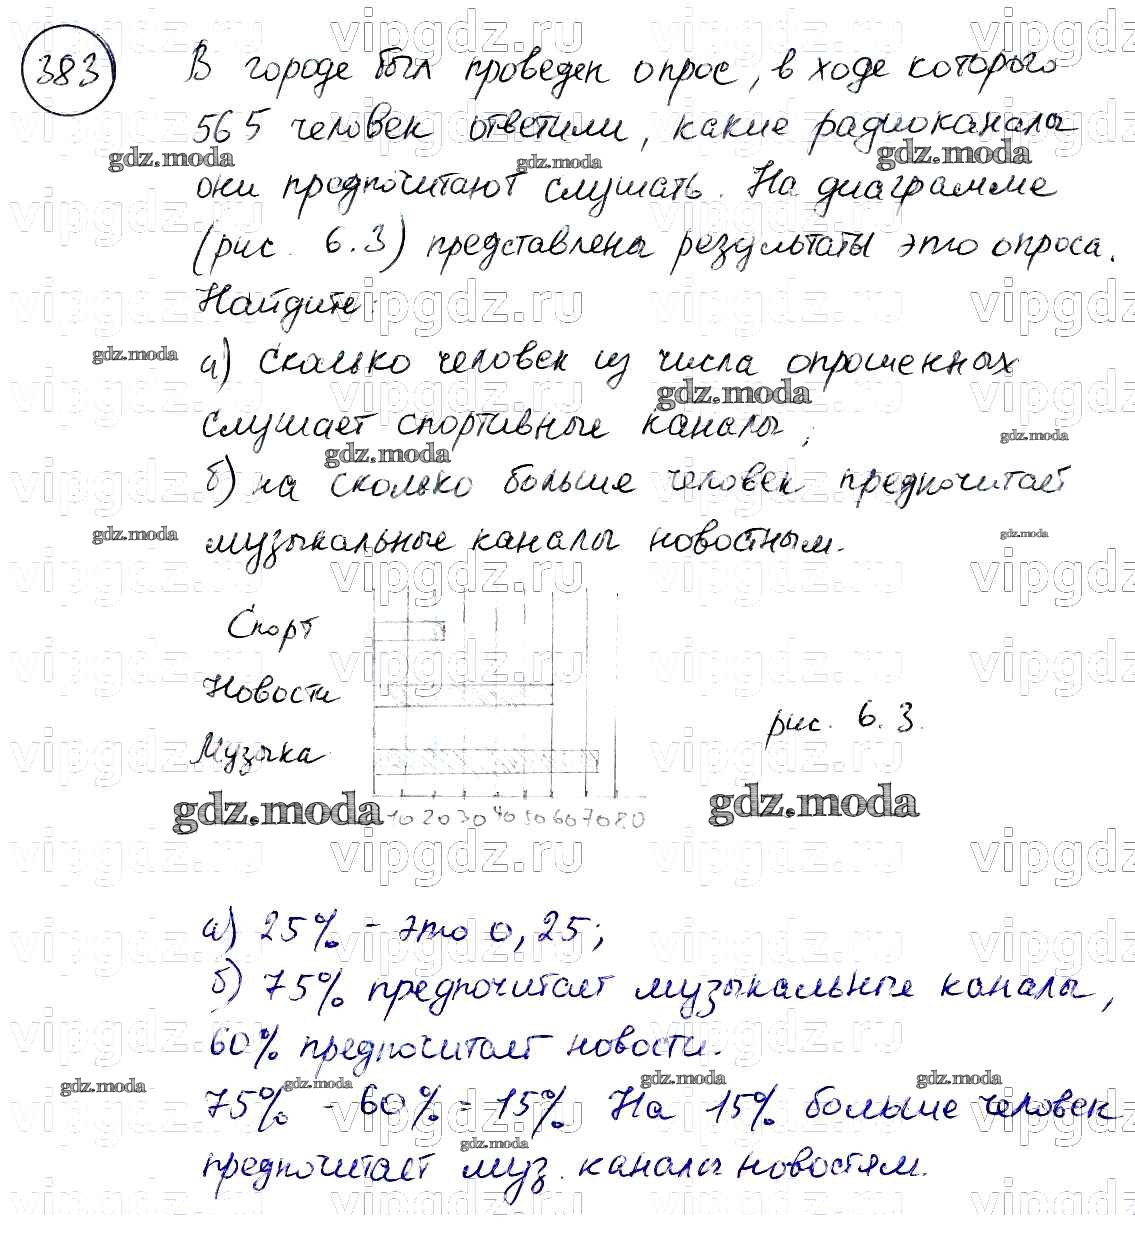 383 В городе был проведен опрос, в ходе которого
565 человек ответили, какие радиоканалы
они предпочитают слушать. На диаграмме
(рис. 6.3) представлены результаты это опроса.
Найдите:
а) Сколько человек из числа опрошенных
слушает спортивные каналы;
б) на сколько больше человек предпочитает
музыкальные каналы новостным.
Спорт
Новости
рис. 6.3.
Музыка
10 20 30 40 50 60 70 80
а) 25% - это 0,25;
б) 75% предпочитает музыкальные каналы,
60% предпочитает новости.
75% - 60% = 15% На 15% больше человек
предпочитает муз. каналы новостям.
vipgdz.ru
gdz.moda